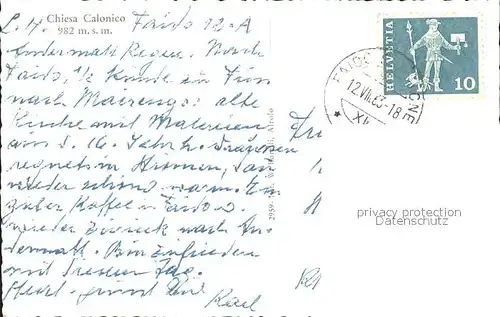 Chiesa Calonico
982 m. s. m.
L. H. Faido 12-A
Andermatt Regen. Nach
Faido, 1/2 Stunde zu Fuss
nach Mairengo: alte
Kirche mit Malereien
aus d. 16. Jahrh. Draussen
regnet in Strömen, dann
wieder schön warm. Ein
guter Kaffee in Faido u.
wieder zurück nach An-
dermatt. Bin zufrieden
mit diesem Tag.
Herzl. grüsst Dich
Karl
HELVETIA
10
FAIDO
12.VII.63-18
privacy protection
Datenschutz